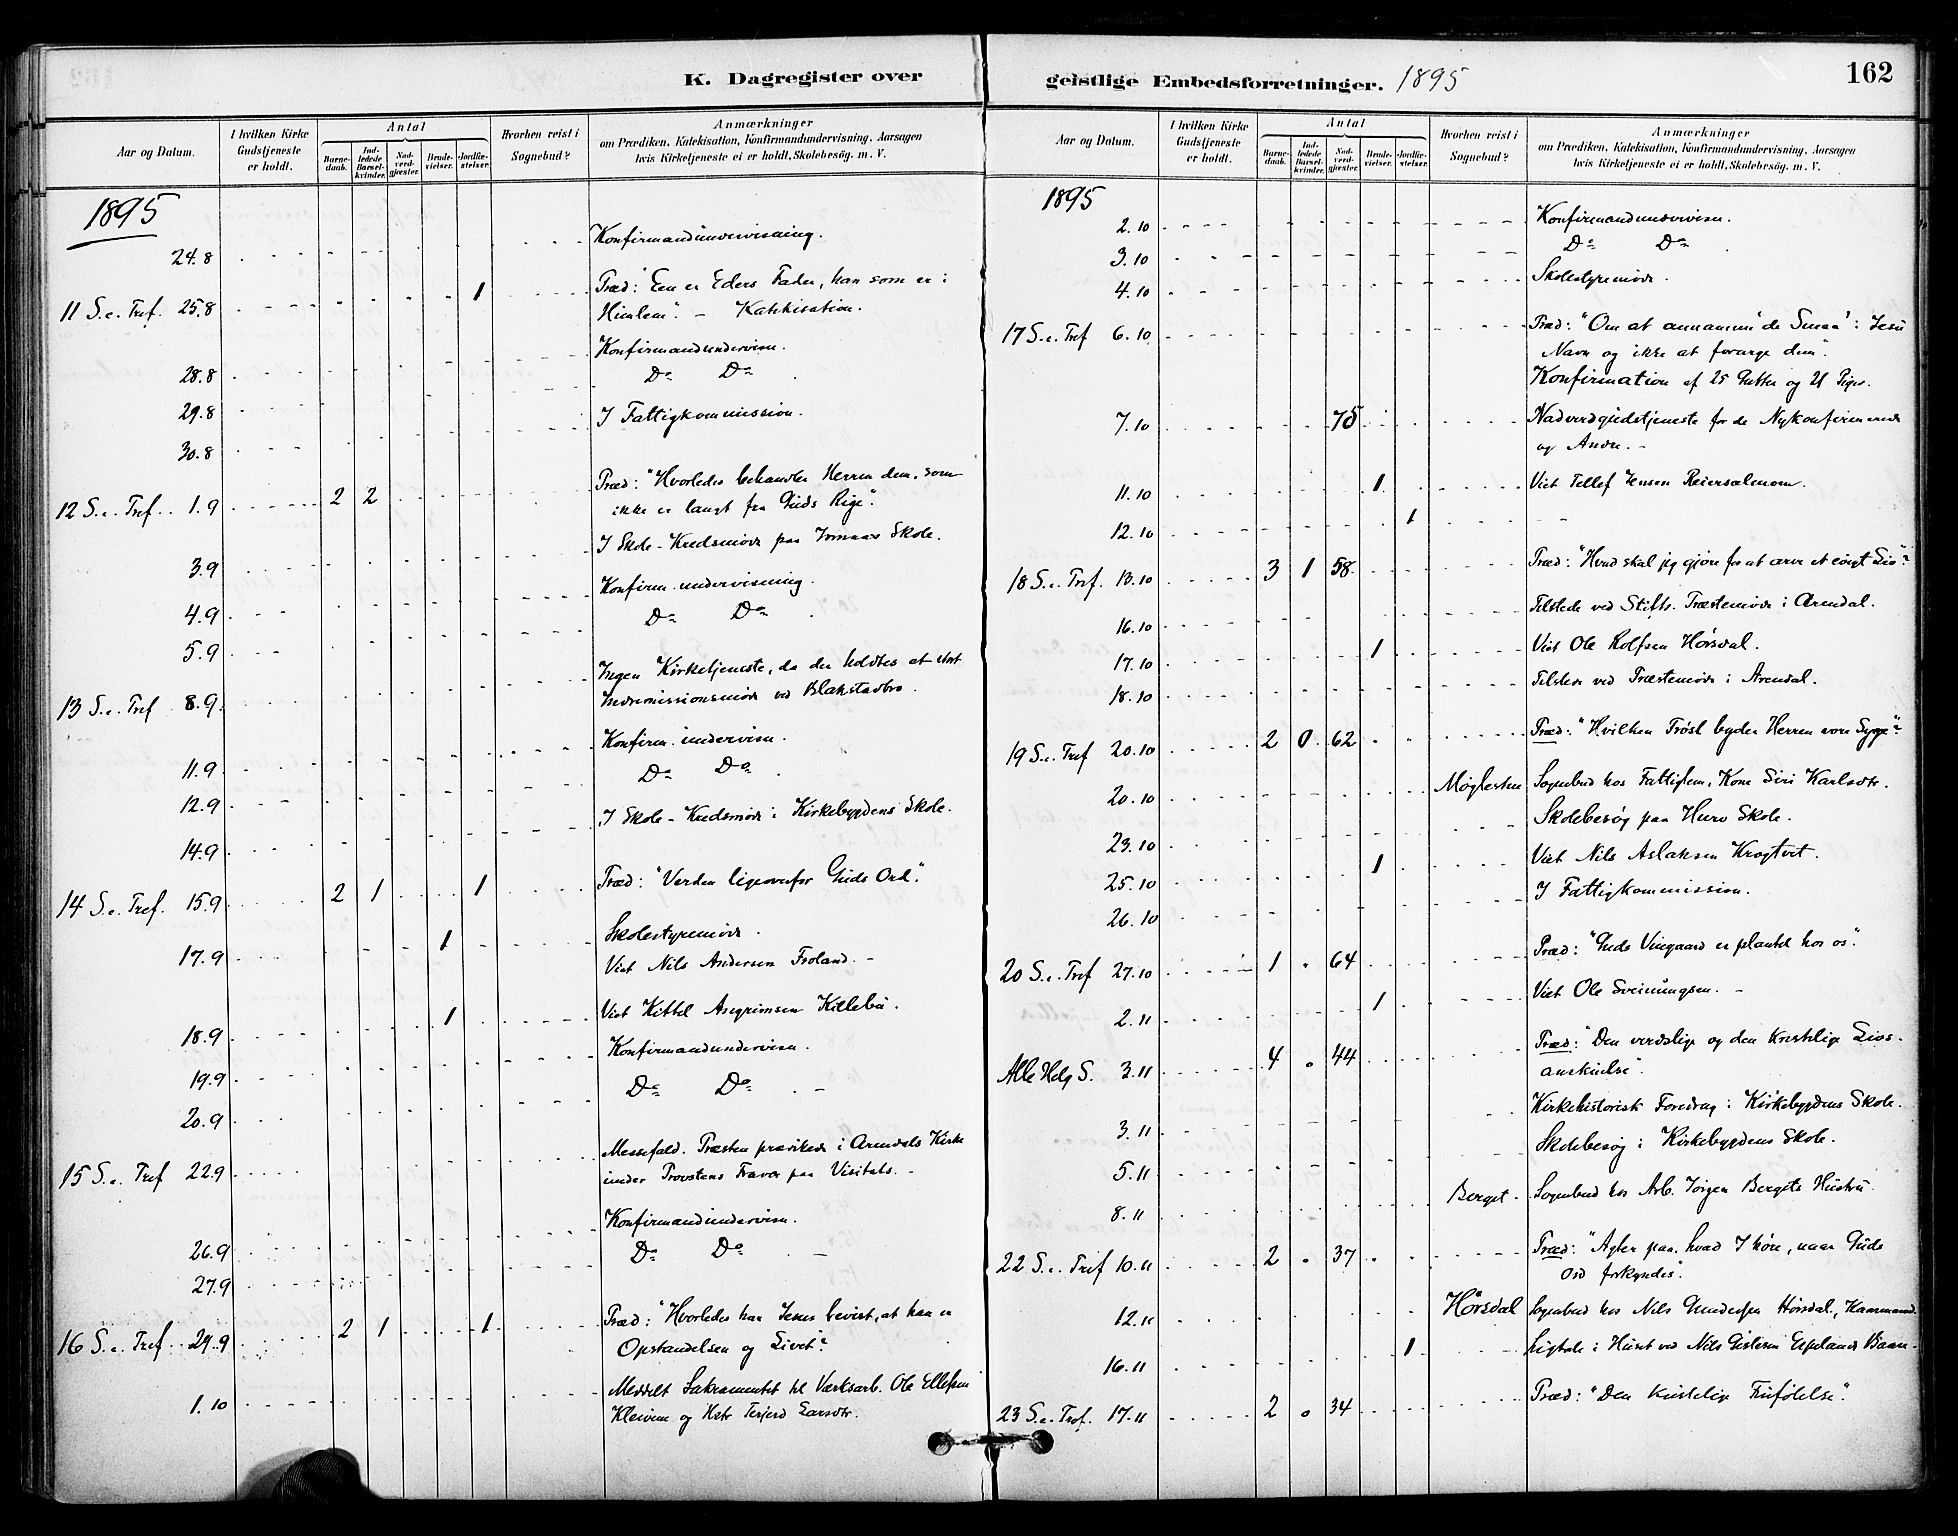 K. Dagregister over
geistlige Embedsforretninger. 1895
162
Aar og Datum.
I hvilken Kirke Gudstjeneste er holdt.
Antal
Barnedaab.
Indledede Barselkvinder.
Nadverdgjester.
Brudevielser.
Jordfæstelser.
Hvorhen reist i Sognebud?
Anmærkninger
om Prædiken, Katekisation, Konfirmandundervisning, Aarsagen
hvis Kirketjeneste ei er holdt, Skolebesög. m. V.
1895
24.8 Konfirmandundervisning.
11 S. e. Tref. 25.8 1 Præd: "Een er Eders Fader, han som er i
Himlem". - Katekisation.
28.8 Konfirmandundervisn.
29.8 Do Do
30.8 I Fattigkommission.
12 S. e. Tref. 1.9 2 2 Præd: "Hvorledes behandler Herren dem, som
ikke er langt fra Guds Rige".
3.9 I Skole-Kredsmöde paa Skole.
4.9 Konfirm. undervisning.
5.9 Do Do
13 S. e. Tref 8.9 Ingen Kirketjeneste, da der holdtes et stort
Indremissionsmöde ved Blakstadbro.
11.9 Konfirm. undervisn.
12.9 Do Do
14.9 I Skole-Kredsmöde i Kirkebygdens Skole.
14 S. e. Tref. 15.9 2 1 1 Præd: "Verden ligeoverfor Guds Ord".
17.9 1 Skolestyremöde.
Viet Nils Andersen Froland. -
18.9 1 Viet Kittel Asgrimsen Killebu.
19.9 Konfirmandundervisn.
20.9 Do Do
15 S. e. Tref 22.9 Messefald. Præsten prædikede i Arendals Kirke
under Provstens Fravær paa Visitats. -
26.9 Konfirmandundervisn.
27.9 Do Do
16 S. e. Tref. 29.9 2 1 1 Præd: "Hvorledes har Jesus bevist, at han er
Opstandelsen og Livet?"
1.10 Meddelt Sakramentet til Værksarb. Ole Ellefsen
Kleivene og Hstr Larsdtr.
Aar og Datum.
I hvilken Kirke Gudstjeneste er holdt.
Antal
Barnedaab.
Indledede Barselkvinder.
Nadverdgjester.
Brudevielser.
Jordfæstelser.
Hvorhen reist i Sognebud?
Anmærkninger
om Prædiken, Katekisation, Konfirmandundervisning, Aarsagen
hvis Kirketjeneste ei er holdt, Skolebesög. m. V.
1895
2.10 Konfirmandundervisn.
3.10 Do Do
4.10 Skolestyremöde.
17 S. e. Tref 6.10 Præd: "Om at annamme de Smaa i Jesu
Navn og ikke at forarge dem".
Konfirmation af 25 Gutter og 21 Piger.
7.10 75 Nadverdgudstjeneste for de Nykonfirmerede
og Andre. -
11.10 1 Viet Tellef Jensen Reiersölmoen.
12.10 1
18 S. e. Tref. 13.10 3 1 58 Præd: "Hvad skal jeg gjöre for at arve et evigt Liv"?
16.10 Tilstede ved Stifts-Præstemöde i Arendal.
17.10 1 Viet Ole Rolfsen Hørsdal.
18.10 Tilstede ved Præstemöde i Arendal.
19 S. e. Tref 20.10 2 0 62 Præd: "Hvilken Trøst byder Herren vore Syge"?
20.10 Møglesten Sognebud hos Fattiglem, Kone Siri Karlsdtr.
23.10 Skolebesög paa Hurv Skole.
25.10 1 Viet Nils Aslaksen Krogtvet.
26.10 I Fattigkommission.
20 S. e. Tref 27.10 1 64 Præd: "Guds Viingaard er plantet hos os".
2.11 1 Viet Ole Sveinungsen. -
Alle Helg S. 3.11 4 44 Præd: "Den verdslige og den kristelige Livsanskuelse".
3.11 Kirkehistorisk Foredrag i Kirkebygdens Skole.
5.11 Skolebesög i Kirkebygdens Skole.
8.11 Berget. Sognebud hos Arb. Jörgen Bergets Hustru.
22 S. e. Tref 10.11 2 37 Præd: "Agter paa, hvad I höre, naar Guds
Ord forkyndes".
12.11 Hørsdal Sognebud hos Nils Hørsdal, Kaarmand.
16.11 1 Ligtale i Huset ved Nils Gislesen Barn.
23 S. e. Tref. 17.11 2 34 Præd: "Den kristelige Friføtelse".